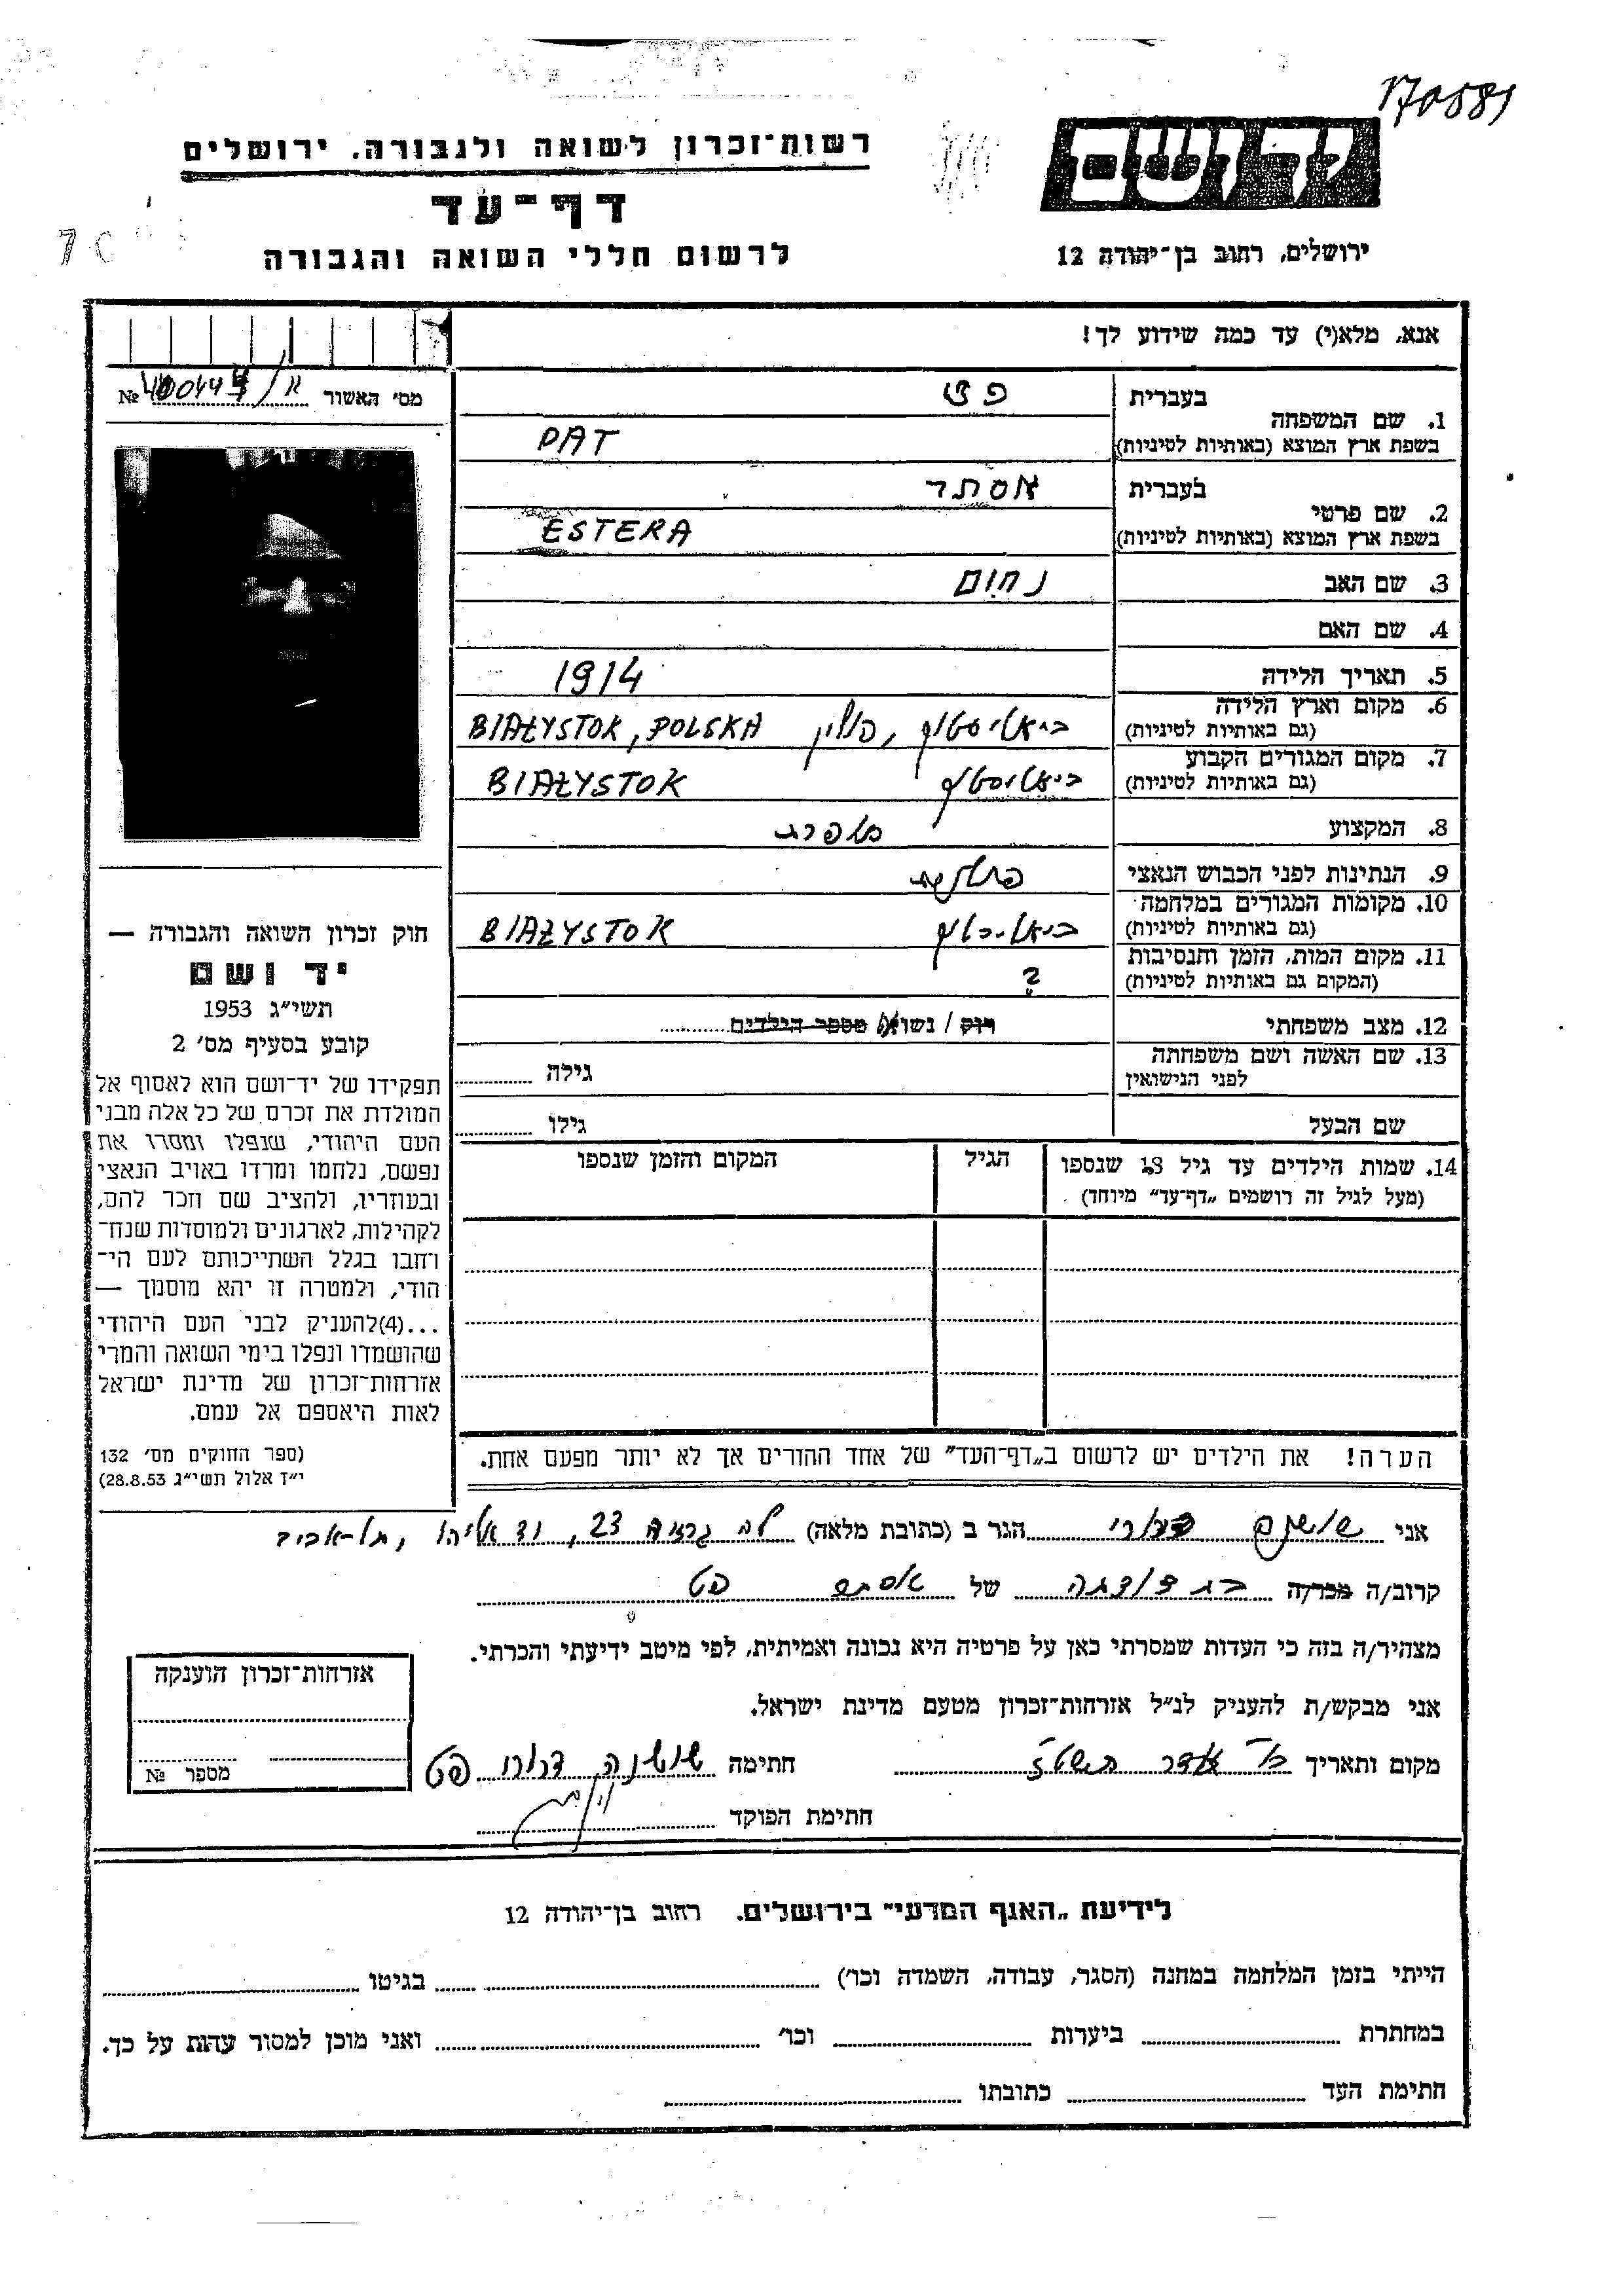 170581
רשות־זכרון לשואה ולגבורה. ירושלים
יד ושם
דף־עד
לרשום חללי השואה והגבורה
ירושלים, רחוב בן־יהודה 12
אנא, מלא(י) עד כמה שידוע לך!
מס׳ האשור №
1. שם המשפחה
בעברית פט
בשפת ארץ המוצא (באותיות לטיניות) PAT
2. שם פרטי
בעברית אסתר
בשפת ארץ המוצא (באותיות לטיניות) ESTERA
3. שם האב נחום
4. שם האם
5. תאריך הלידה 1914
6. מקום וארץ הלידה ביאליסטוק, פולין BIAŁYSTOK, POLSKA
(גם באותיות לטיניות)
7. מקום המגורים הקבוע ביאליסטוק BIAŁYSTOK
(גם באותיות לטיניות)
8. המקצוע
9. הנתינות לפני הכבוש הנאצי פולנית
10. מקומות המגורים במלחמה ביאליסטוק BIAŁYSTOK
(גם באותיות לטיניות)
11. מקום המות, הזמן והנסיבות ?
(המקום גם באותיות לטיניות)
12. מצב משפחתי רוק / נשוי/ מספר הילדים
13. שם האשה ושם משפחתה
לפני הנישואין גילה
שם הבעל גילו
14. שמות הילדים עד גיל 18 שנספו הגיל המקום והזמן שנספו
(מעל לגיל זה רושמים „דף־עד״ מיוחד)
הערה! את הילדים יש לרשום ב„דף־העד״ של אחד ההורים אך לא יותר מפעם אחת.
חוק זכרון השואה והגבורה —
יד ושם
תשי״ג 1953
קובע בסעיף מס׳ 2
תפקידו של יד־ושם הוא לאסוף אל
המולדת את זכרם של כל אלה מבני
העם היהודי, שנפלו ומסרו את
נפשם, נלחמו ומרדו באויב הנאצי
ובעוזריו, ולהציב שם וזכר להם,
לקהילות, לארגונים ולמוסדות שנח־
רחבו בגלל השתייכותם לעם הי־
הודי, ולמטרה זו יהא מוסמך —
...(4)להעניק לבני העם היהודי
שהושמדו ונפלו בימי השואה והמרי
אזרחות־זכרון של מדינת ישראל
לאות היאספם אל עמם.
(ספר החוקים מס׳ 132
י״ז אלול תשי״ג 28.8.53)
אני שושנה דרורי הגר ב (כתובת מלאה) לה גרדיה 23, יד אליהו, תל-אביב
קרוב/ה מכר/ה בת דודתה של אסתר פט
מצהיר/ה בזה כי העדות שמסרתי כאן על פרטיה היא נכונה ואמיתית, לפי מיטב ידיעתי והכרתי.
אני מבקש/ת להעניק לנ״ל אזרחות־זכרון מטעם מדינת ישראל.
מקום ותאריך אדר תשט״ז חתימה שושנה דרורי פט
חתימת הפוקד
אזרחות־זכרון הוענקה
מספר №
לידיעת „האגף המדעי״ בירושלים. רחוב בן־יהודה 12
הייתי בזמן המלחמה במחנה (הסגר, עבודה, השמדה וכו׳) בגיטו
במחתרת ביערות וכו׳ ואני מוכן למסור עדות על כך.
חתימת העד כתובתו